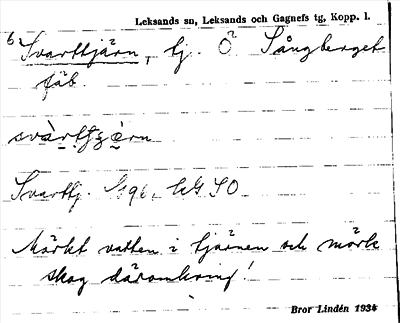 Leksands sn, Leksands och Gagnefs tg, Kopp. l.
6 Svarttjärn, tj. Ö Sångberget
fäb.
Svarttj.
Mörkt vatten i tjärnen och mörk
skog däromkring!
Bror Lindén 1934